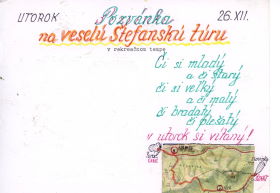 UTOROK Pozvánka 26.XII.
na veselú Štefanskú túru
v rekreačnom tempe
Či si mladý
a či starý
či si veľký
a či malý
či bradatý
či plešatý
v utorok si vítaný!